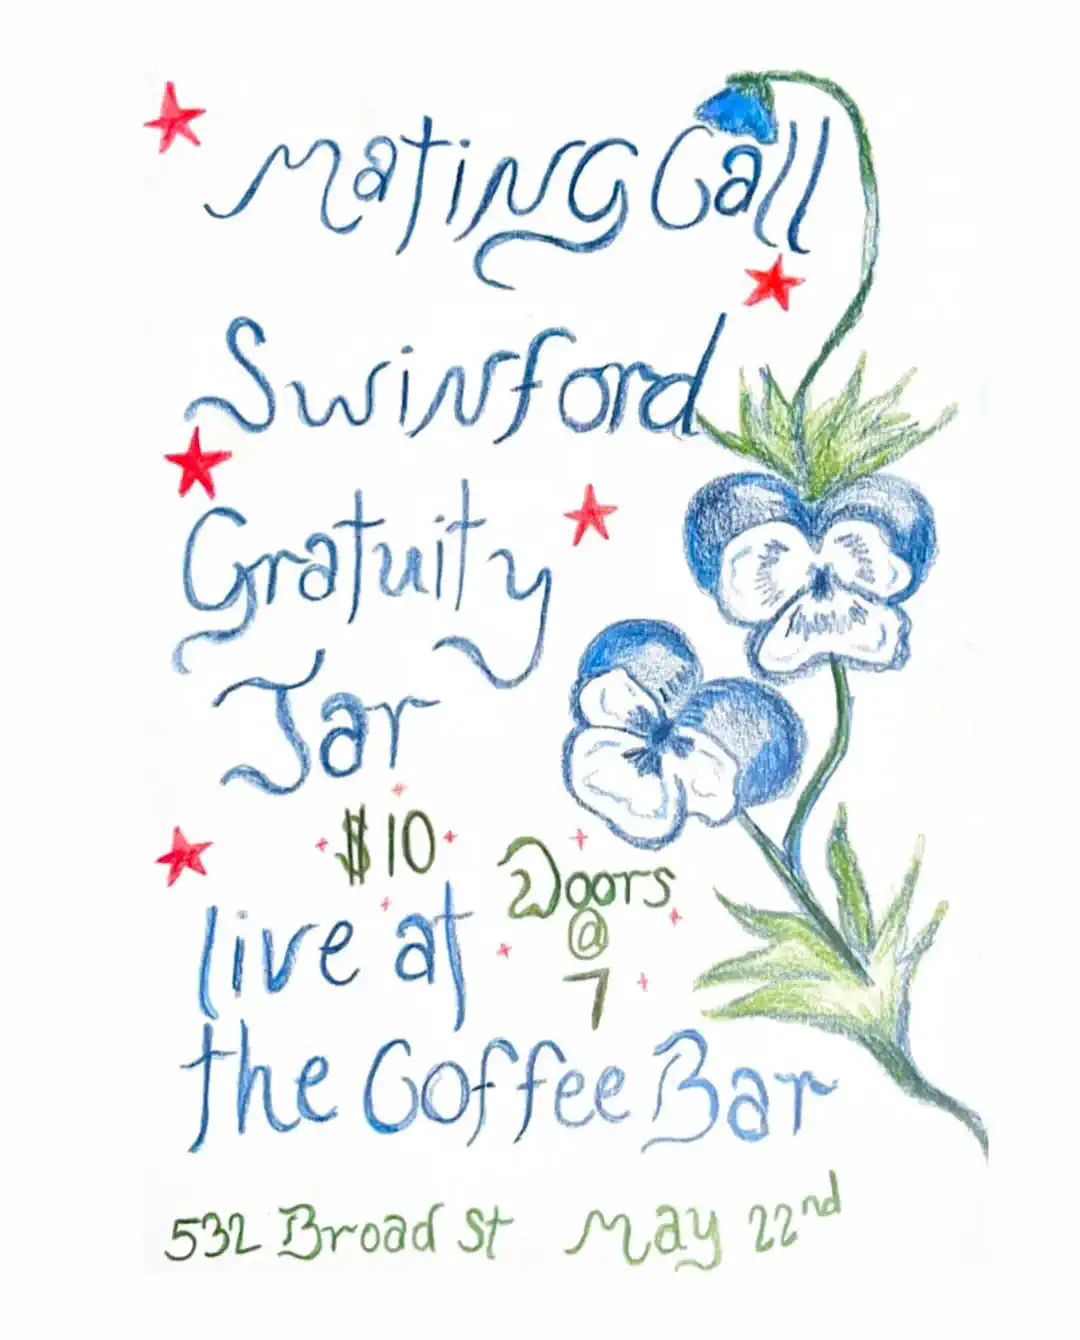 Mating Call
Swinford
Gratuity
Jar
$10
Doors
@
7
live at
the Coffee Bar
532 Broad St May 22nd